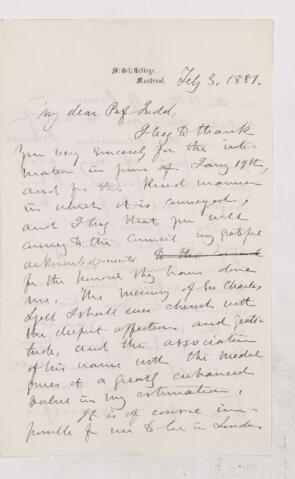 McGill College,
Montreal.
Feby 3, 1881.
My dear Prof. Judd,
I beg to thank
you very sincerely for the inti-
mation in yours of Jany 19th,
and for the kind manner
in which it is conveyed;
and I beg that you will
convey to the Council my grateful
acknowledgments to the
for the honour they have done
me. The memory of Sir Charles
Lyell I shall ever cherish with
the deepest affection and grati-
tude, and the association
of his name with the medal
gives it a greatly enhanced
value in my estimation.
It is of course im-
possible for me to be in London